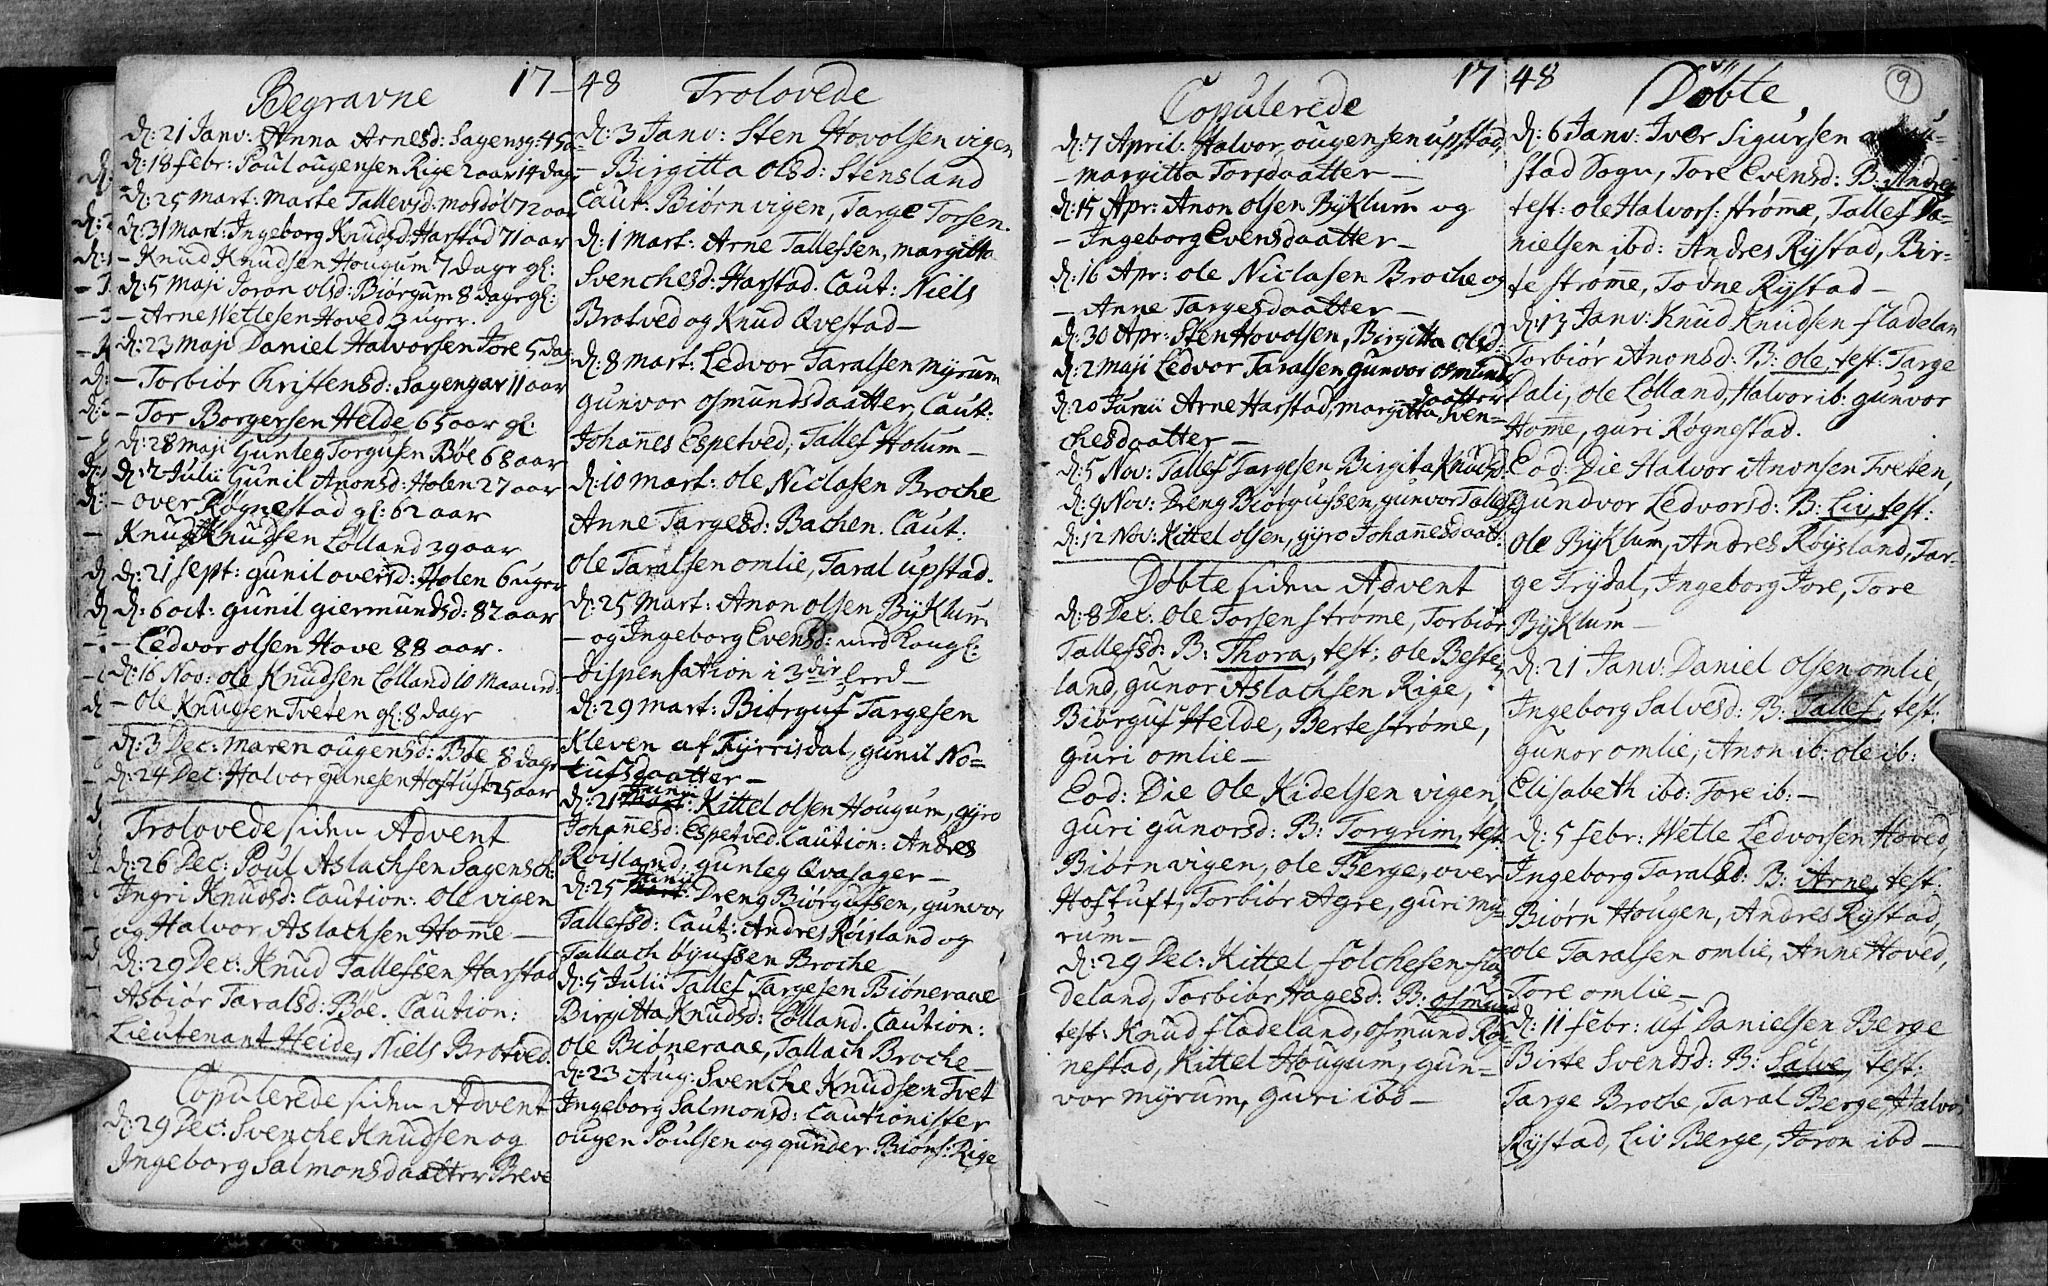 Begravne 17-
d: 21 Janv: Anna Arnesd: Sageng: 4
d: 18 febr: Poul ougensen Rige 2 aar 14 dage
d: 25 Mart: Marte Tallevsd: mosdøl 72 aar
d: 31 Mart: Ingeborg Knudsd: Harstad 71 aar
- Knud Knudsen Hougum 7 dage gl:
d: 5 Maji Joron olsd: Biørgum 8 dage gl:
- Arne Wetlesen Hoved 3 uger.
d: 23 Maji Daniel Halvorsen Jore 5 dag
- Torbiør Christensd: Sagengav 11 aar
- Tor Borgersen Helde 65 aar gl:
d: 28 Maji Gunleg Torgusen Bøe 68 aar
d: 2 Julii Gunil Anonsd: Holen 27 aar
- over Røgnestad gl: 62 aar
Knud Knudsen Lølland 39 aar
d: 21 Sept: gunil oversd: Holen 6 uger
d: 6 oct: gunil giermundsd: 82 aar
- Ledvor olsen Hove 88 aar.
d: 16 Nov: ole Knudsen Lølland 10 Maaned:
- Ole Knudsen Tveten gl: 8 dage
d: 3 Dec: Maren ougensd: Bøe 8 dage
d: 24 Dec: Halvor gunesen Hoftuft 25 aar
Trolovede siden Advent
d: 26 Dec: Poul Aslachsen Sagensch:
Ingri Knudsd: Caution: Ole vigen
og Halvor Aslachsen Homme -
d: 29 Dec: Knud Tallefsen Harstad
Asbiør Taralsd: Bøe. Caution:
Lieutenant Heide, Niels Brotved.
Copulerede siden Advent
d: 29 Dec: Svenche Knudsen og
Ingeborg Salmonsdaatter Beeve
48 Trolovede
d: 3 Janv: Sten Hovolsen vigen
- Birgitta olsd: Stensland
Caut: Biørn vigen, Targe Torsen.
d: 1 Mart: Arne Tallefsen, margitta
Svenchesd: Harstad. Caut: Niels
Brotved og Knud Qvestad -
d: 8 Mart: Ledvor Taralsen Myrum
Gunvor osmundsdaatter, Caut:
Johannes Espetved, Tallef Holum -
d: 10 Mart: ole Niclasen Broche
Anne Targesd: Bachen. Caut:
Ole Taralsen omlie, Taral upstad.
d: 25 Mart: Anon olsen Byklum
- og Ingeborg Evensd: med Kongl:
dispensation i 3die Leed -
d: 29 Mart: Biørguf Targesen
Kleven af Fyrrisdal, gunil No-
tufsdaatter -
Junii
d: 21 Mart: Kittel olsen Hougum, gyro
Johannesd: Espetved. Caution: Andres
Røisland, gunleg Qvasager -
Junii
d: 25 Mart: Dreng Biørgufsen, gunvor
Tallefsd: Caut: Andres Røisland og
Tallach byufsen Broche
d: 5 Julii Tallef Targesen Biøneraae
Birgitta Knudsd: Lølland. Caution:
Ole Biøneraae, Tallach Broche -
d: 23 Aug: Svenche Knudsen Tvet
Ingeborg Salmonsd: Cautionister
ougen Poulsen og gunder Biøns: Rige
Copulerede 17
d: 7 April: Halvor ougensen upstad,
- margitta Torsdaatter -
d: 15 Apr: Anon olsen Byklum og
- Ingeborg Evensdaatter -
d: 16 Apr: ole Niclasen Broche og
- Anne Targesdaatter -
d: 30 Apr: Sten Hovolsen, Birgitta olsd:
d: 2 Maji Ledvor Taralsen, gunvor osmunds
daatter
d: 20 Junii Arne Harstad, margitta Sven-
chesdaatter -
d: 5 Nov: Tallef Targesen Birgita Knudsd:
d: 9 Nov: Dreng Biørgufsen, gunvor Tallefs
d: 12 Nov: Kittel olsen, gyro Johannesdaat:
Døbte siden Advent
d: 8 Dec: Ole Torsen strøme, Torbiør
Tallefsd: B: Thora, test: ole Beste-
land, gunor Aslachsen Rige,
Biørguf Helde, Berte strøme,
guri omlie -
Eod: Die Ole Kidelsen vigen,
guri gunorsd: B: Torgrim, test:
Biørn vigen, ole Berge, over
Hoftuft, Torbiør Agre, guri my-
rum -
d: 29 Dec: Kittel folchesen fla-
deland, Torbiør Hagesd: B: osmund
test: Knud fladeland, osmund Røg-
nestad, Kittel Hougum, gun-
vor myrum, guri ibd -
48 Døbte
9
d: 6 Janv: Iver Sigursen
stad Sogn, Tore Evensd: B: Andres
test: ole Halvors: strøme, Tallef Da-
nielsen ibd: Andres Rystad, Bir-
te strøme, Todne Rystad -
d: 13 Janv: Knud Knudsen fladelan
Torbiør Anonsd: B: Ole, test: Targe
Dali, ole Lølland, Halvor ib: gunvor
Home, guri Røgnestad.
Eod: Die Halvor Anonsen Tveten,
gundvor Ledvorsd: B: Liv, test:
Ole Byklum, Andres Røysland, Tar-
ge Trydal, Ingeborg Jore, Tore
Byklum -
d: 21 Janv: Daniel olsen omlie,
Ingeborg Salvesd: B: Tallef, test:
gunor omlie, Anon ib: ole ib:
Elisabeth ibd: Tore ib: -
d: 5 febr: Wetle Ledvorsen Hoved,
Ingeborg Taralsd: B: Arne, test:
Biørn Hougen, Andres Rystad,
ole Taralsen omlie, Anne Hoved,
Tore omlie -
d: 11 febr: uf Danielsen Berge
Birte Svendsd: B: Salve, test:
Targe Broche, Taral Berge, Halvor
Rystad, Liv Berge, Joron ibd -